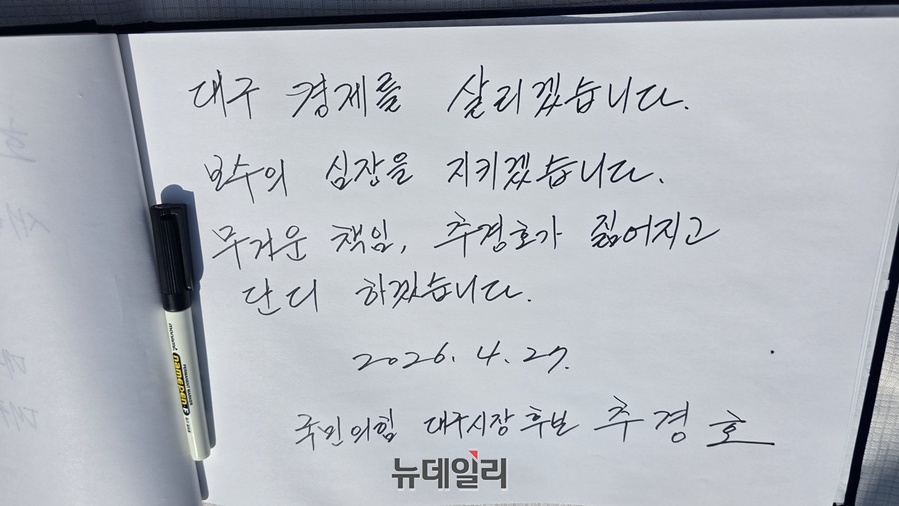 대구 경제를 살리겠습니다.
보수의 심장을 지키겠습니다.
무거운 책임, 추경호가 짊어지고
단디 하겠습니다.
2026. 4. 27.
국민의힘 대구시장 후보 추경호
namepen F
뉴데일리